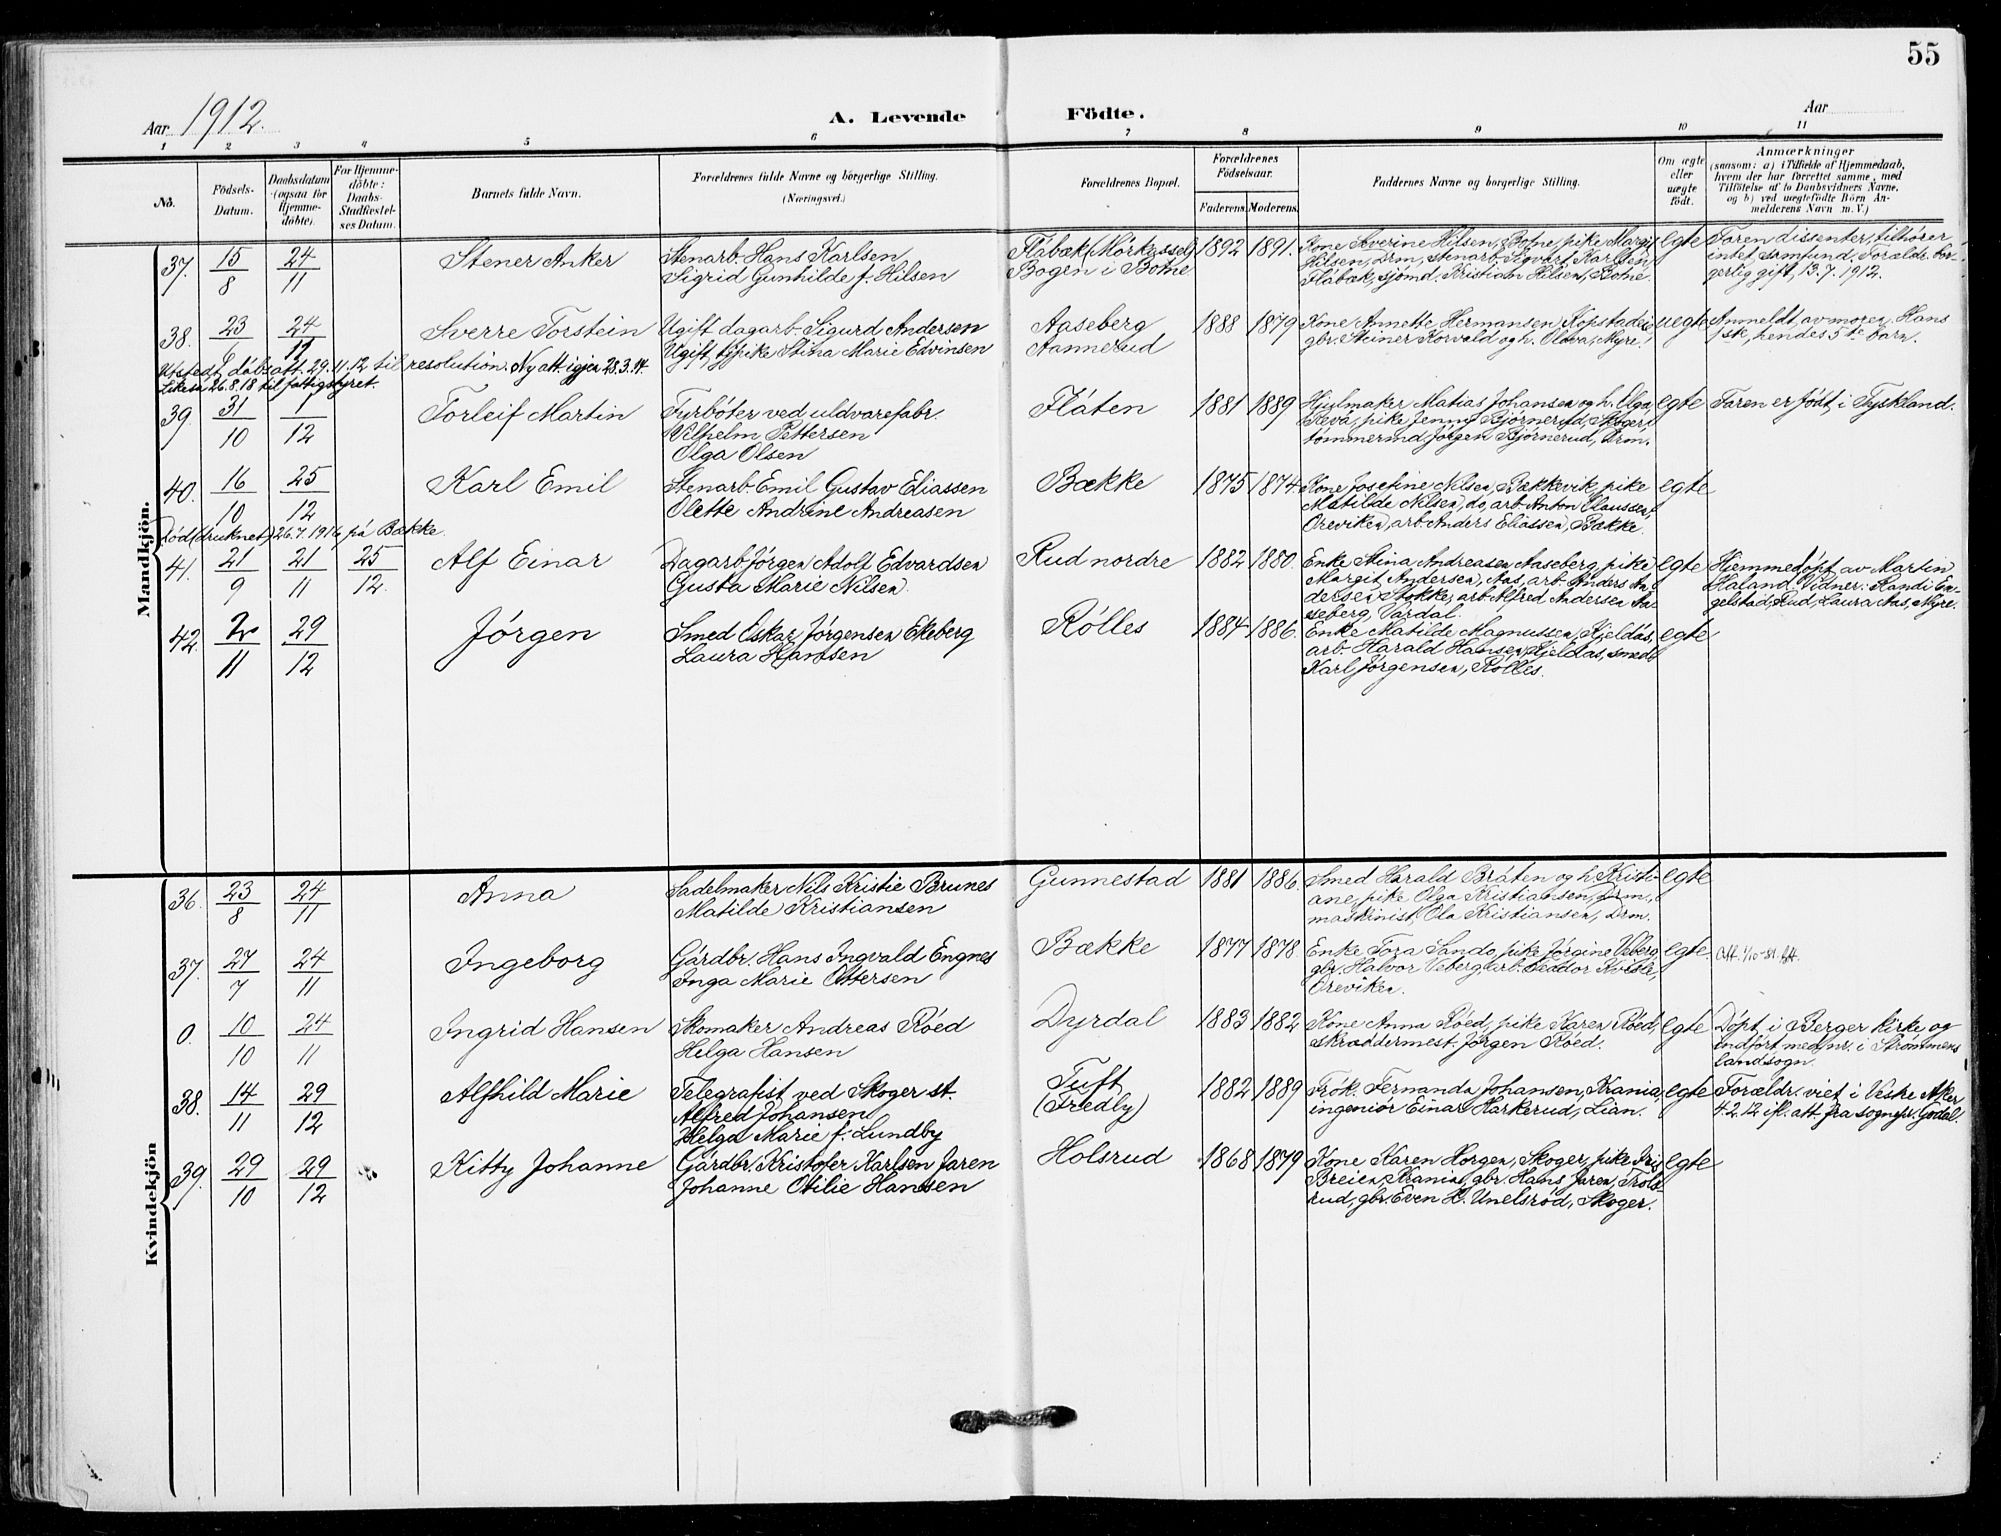 55
Aar 1912.
A. Levende Födte.
Aar
1 2 3 4 5 6 7 8 9 10 11
No.
Födsels-Datum.
Daabsdatum (ogsaa for Hjemme-döbte).
For Hjemme-döbte: Daabs-Stadfæstel-ses Datum.
Barnets fulde Navn.
Forældrenes fulde Navne og borgerlige Stilling.
(Næringsvei.)
Forældrenes Bopæl.
Forældrenes Födselsaar.
Faderens. Moderens.
Faddernes Navne og borgerlige Stilling.
Om ægte eller uægte födt.
Anmærkninger
(saasom: a) i Tilfælde af Hjemmedaab,
hvem der har forrettet samme, med
Tilföielse af to Daabsvidners Navne,
og b) ved uægtefödte Börn An-
melderens Navn m. V.)
Mandkjön.
37. 15/8 24/11 Stener Anker
Stenarb. Hans Karlsen
Sigrid Gunhilde f. Hilsen
Flåbæk (Mörkassel)
Bogen i Botne
1892 1891.
Kone Severine Hilsen, Botne, pike Margit
Hilsen, Drm, stenarb. Sigvart Karlsen
Flåbæk, sjömd. Kristian Hilsen, Botne.
egte
Faren dissenter, tilhører
intet samfund, Forældr. bor-
gerlig gift, 13.7.1912.
38. 23 24/12 Sverre Torstein
Ugift dagarb. Sigurd Andersen
Ugift tj.pike Stina Marie Edvinsen
Aaseberg
Aannerud
1888 1879
Kone Annette Hermansen Kopstadeie
gbr. Steiner Korvald og h. Olava, Myre.
uegte
Anmeldt av moren. Hans
1ste, hendes 5te barn.
Utstedt dåbsatt. 29.11.12 til resolution. Ny att igjen 28.3.14.
Likeså 26.8.18 til fattigstyret.
39. 31/10 1/12 Torleif Martin
Fyrböter ved uldvarefabr.
Vilhelm Pettersen
Olga Olsen
Flåten
1881 1889
Hjulmaker Matias Johansen og h. Olga,
Reva, pike Jenny Bjørnerud, Skoger,
tömmermd Jörgen Bjørnerud, Drm.
egte
Faren er född i Tyskland.
40. 16/10 25/12 Karl Emil
Stenarb. Emil Gustav Eliassen
Olette Andrine Andreasen
Bække
1875 1874.
Kone Josefine Nilsen, Bækkevik, pike
Matilde Nilsen, do, arb. Anton Claussen,
Oreviken, arb. Anders Eliassen, Bække.
egte
Död (druknet) 26.7.1916 på Bække.
41. 21/9 21/11 25/12. Alf Einar
Dagarb. Jörgen Adolf Edvardsen
Gusta Marie Nilsen.
Rud nordre
1882 1880.
Enke Stina Andreasen Aaseberg, pike
Margit Andersen, Aas, arb. Anders An-
dersen Stokke, arb. Alfred Andersen Aa-
seberg, Vårdal.
egte
Hjemmedöpt av Martin
Haland. Vidner: Randi En-
gelstad, Rud, Laura Aas, Myre.
42. 2/11 29/12 Jörgen
Smed Oskar Jörgensen Ekeberg
Laura Hansen
Rölles
1884 1886.
Enke Matilde Magnussen, Kjeldås,
arb. Harald Hansen, Kjeldås, smed
Karl Jörgensen, Rölles.
egte
Kvindekjön
36. 23/8 24/11 Anna
Sadelmaker Nils Kristie Brunes
Matilde Kristiansen
Gunnestad
1881 1886.
Smed Harald Bråten og h. Kristi-
ane, pike Olga Kristiansen, Drm,
maskinist Ola Kristiansen, Drm.
egte
37. 27/7 24/11 Ingeborg
Gårdbr. Hans Ingvald Engnes
Inga Marie Ottersen
Bække
1877 1878.
Enke Tora Sando, pike Jörgine Veberg,
gbr. Halvor Veberg, arb. Teodor Kvisle,
Oreviken.
egte
Att. 1/10-51.
0. 10/10 24/11 Ingrid Hansen
Skomaker Andreas Röed
Helga Hansen
Dyrdal
1883 1882
Kone Anna Röed, pike Karen Röed,
skræddermest. Jörgen Röed.
egte
Döpt i Berger kirke og
indfört med nr. i Strømmens
landsogn.
38. 14/11 29/12 Alfhild Marie
Telegrafist ved Skoger st.
Alfred Johansen
Helga Marie f. Lundby
Tuft
(Fredly)
1882 1889
Frök. Fernanda Johansen, Krania,
ingeniör Einar Harkerud, Lian.
egte
Forældr. viet i Vestre Aker
4.2.12 ifl. att. fra sognepr. Godal.
39. 29/10 29/12 Kitty Johanne
Gårdbr. Kristofer Karlsen Jaren
Johanne Otilie Hansen
Holsrud
1868 1879
Kone Karen Horgen, Skoger, pike Iris
Breien, Krania, gbr. Hans Jaren, Trols-
rud, gbr. Even H. Unelsröd, Skoger.
egte